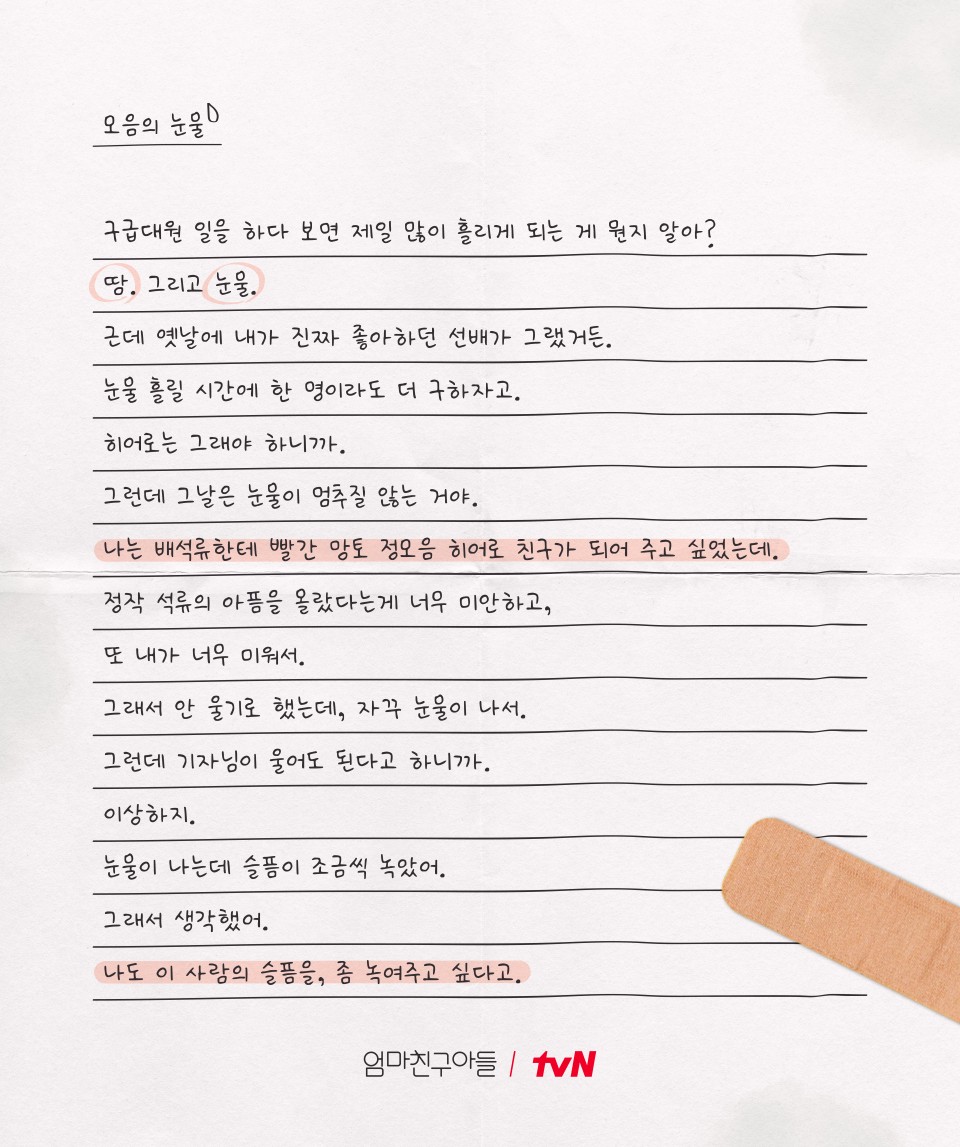 모음의 눈물
구급대원 일을 하다 보면 제일 많이 흘리게 되는 게 뭔지 알아?
땀. 그리고 눈물.
근데 옛날에 내가 진짜 좋아하던 선배가 그랬거든.
눈물 흘릴 시간에 한 명이라도 더 구하자고.
히어로는 그래야 하니까.
그런데 그날은 눈물이 멈추질 않는 거야.
나는 배석류한테 빨간 망토 정모음 히어로 친구가 되어 주고 싶었는데.
정작 석류의 아픔을 몰랐다는게 너무 미안하고,
또 내가 너무 미워서.
그래서 안 울기로 했는데, 자꾸 눈물이 나서.
그런데 기자님이 울어도 된다고 하니까.
이상하지.
눈물이 나는데 슬픔이 조금씩 녹았어.
그래서 생각했어.
나도 이 사람의 슬픔을, 좀 녹여주고 싶다고.
엄마친구아들 / tvN